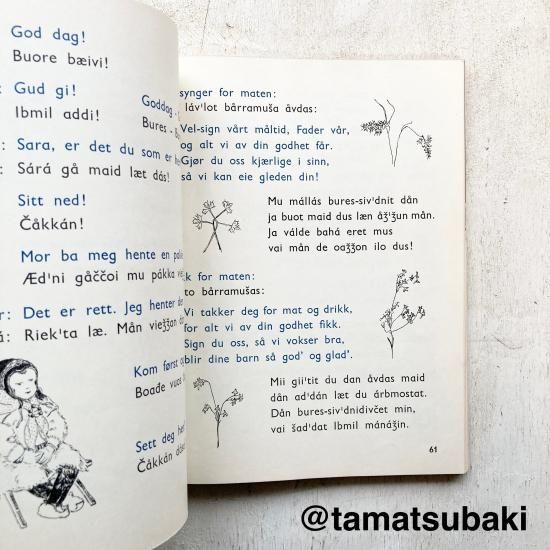 God dag!
Buore bæivi!
Gud gi!
Ibmil addi!
Goddag -
Bures -
Sara, er det du som er
Sárá gå maid læt dás!
Sitt ned!
Čåkkán!
Mor ba meg hente en
Æd'ni gåččoi mu pákka
Det er rett. Jeg henter
Riek'ta læ. Mån vieǯǯan
Kom først og
Boađe
Sett deg
Čåkkán
synger for maten:
láv'lot bårramuša åvdas:
Vel-sign vårt måltid, Fader vår,
og alt vi av din godhet får.
Gjør du oss kjærlige i sinn,
så vi kan eie gleden din!
Mu mállás bures-siv'dnit dån
ja buot maid dus læn åǯ'ǯun mån.
Ja válde bahá eret mus
vai mån de oaǯǯon ilo dus!
k for maten:
to bårramušas:
Vi takker deg for mat og drikk,
for alt vi av din godhet fikk.
Sign du oss, så vi vokser bra,
blir dine barn så god' og glad'.
Mii gii'tit du dan åvdas maid
dån ad'dán læt du árbmostat.
Dån bures-siv'dnidivčet min,
vai šad'dat Ibmil mánáǯin.
61
@tamatsubaki